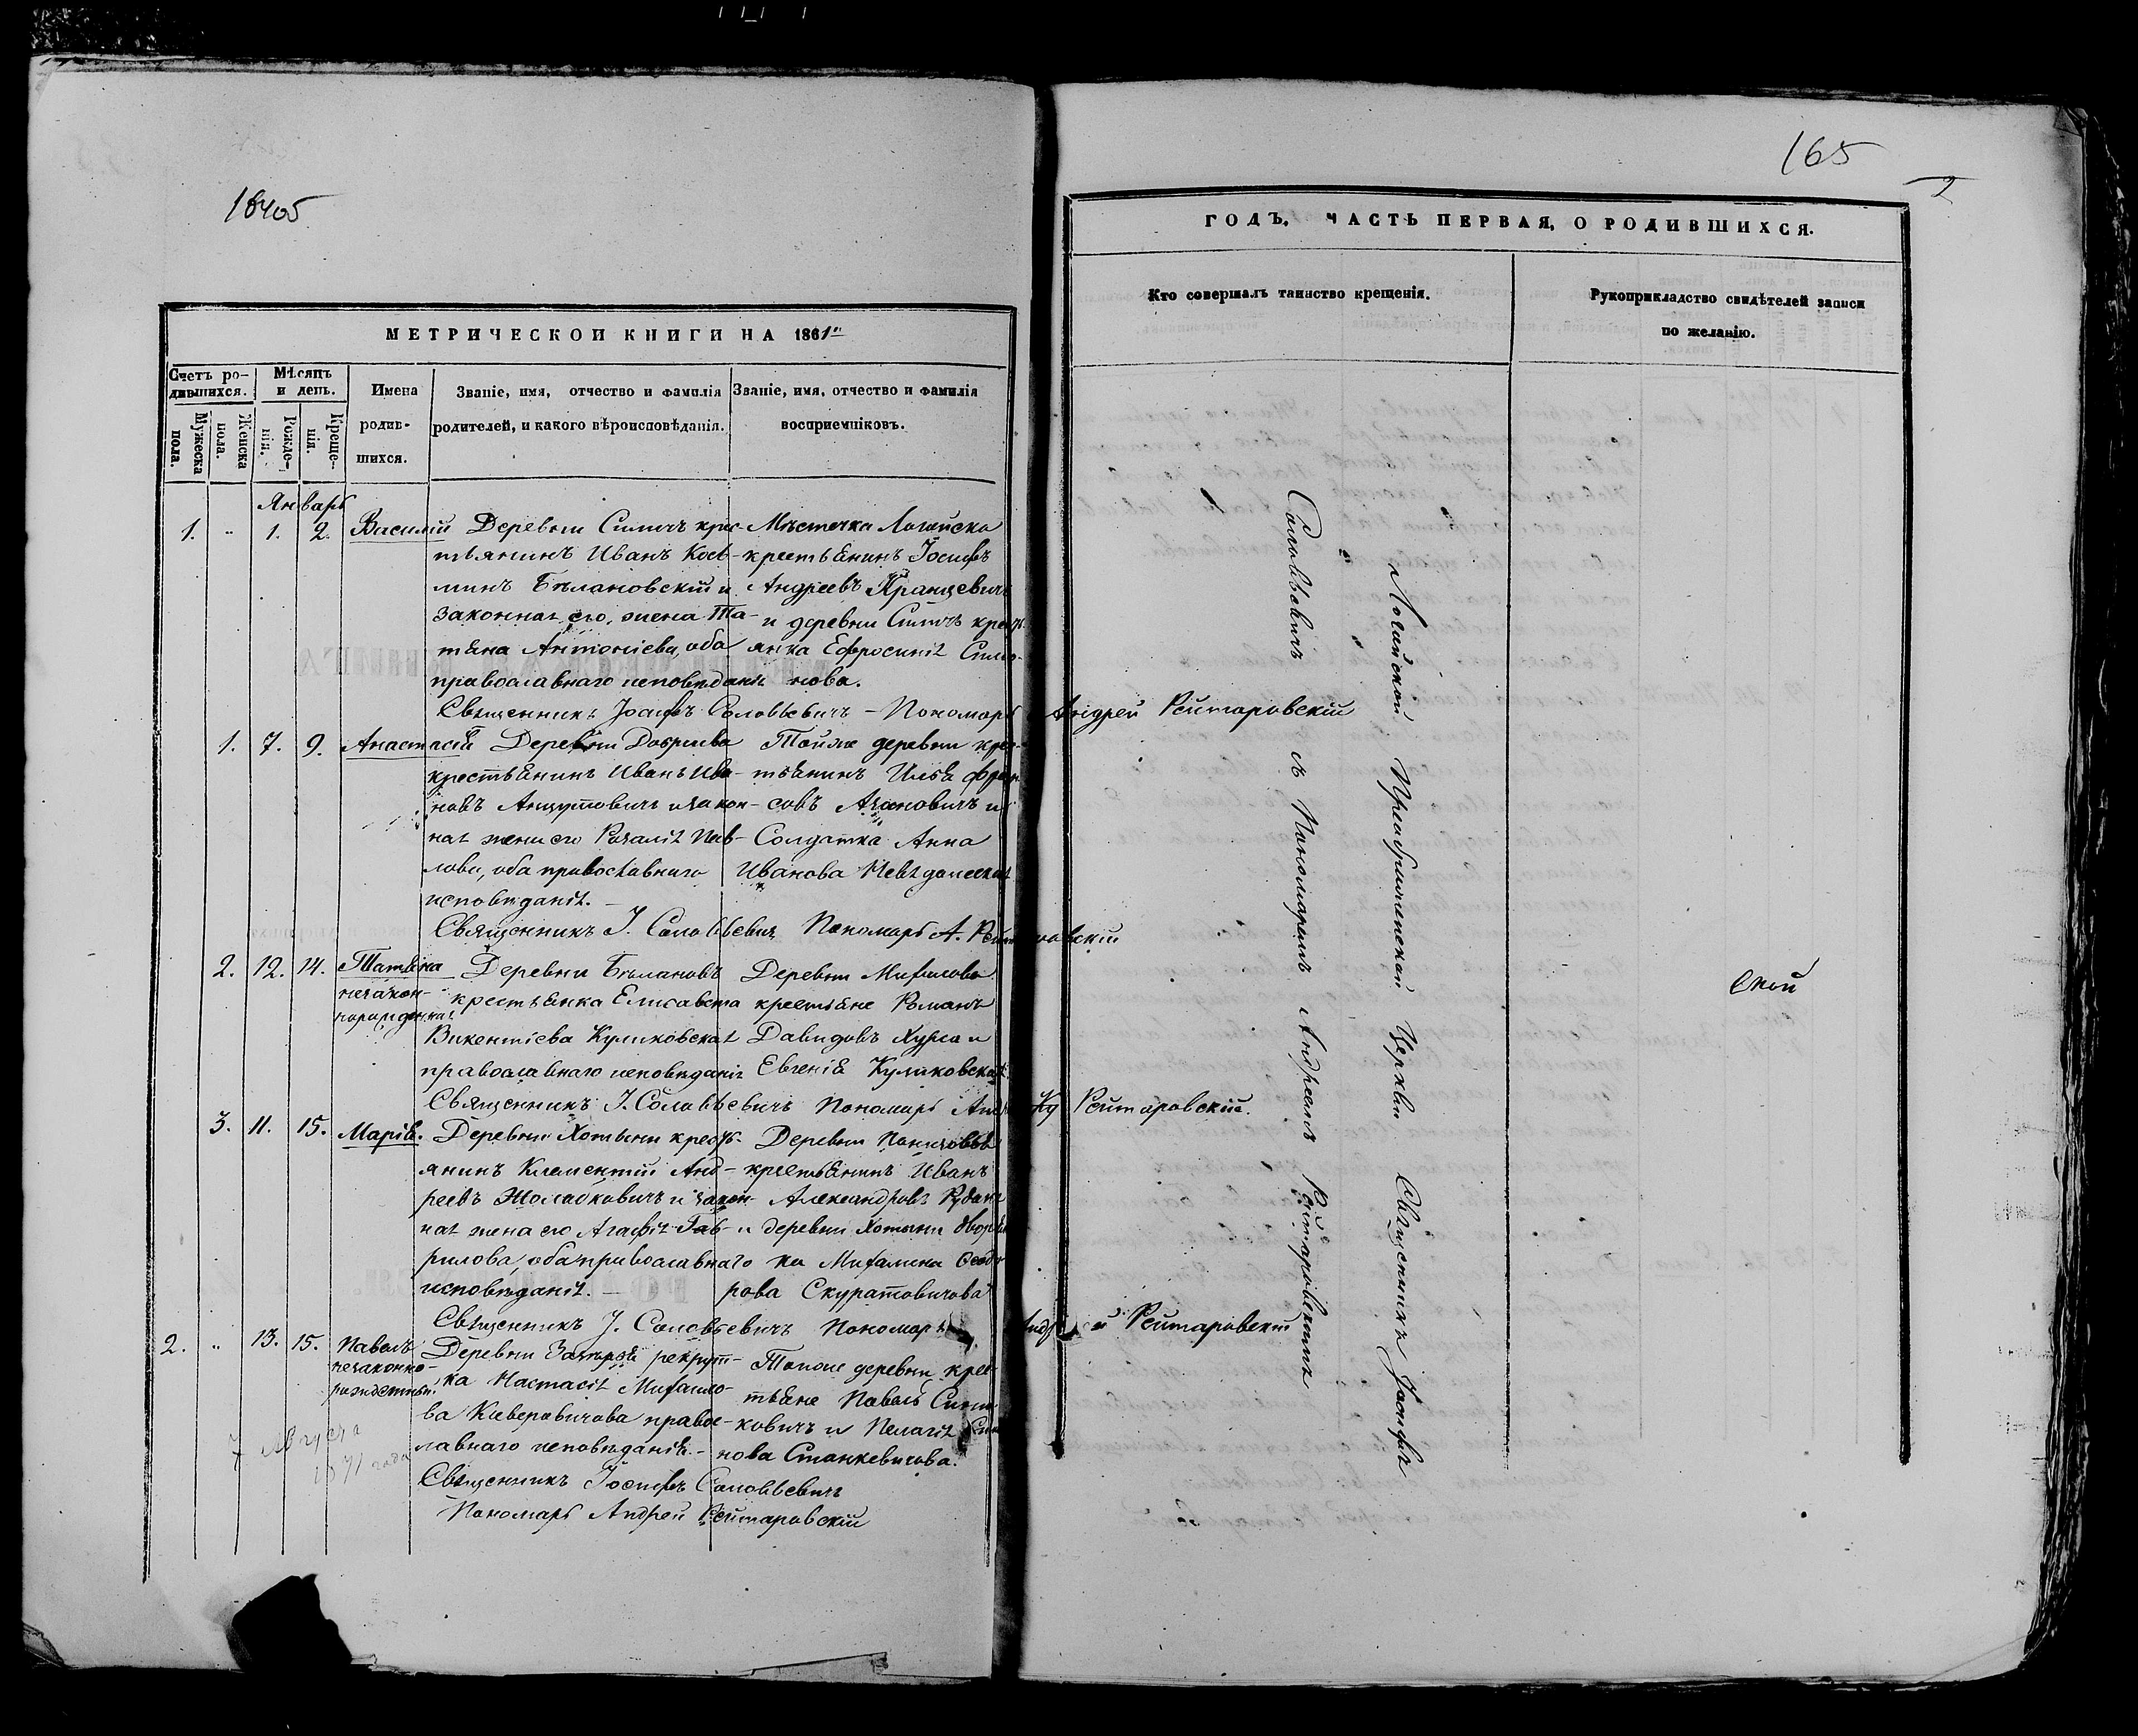 16405
МЕТРИЧЕСКОЙ КНИГИ НА 1861й
Счетъ ро-
дившихся.
Мѣсяцъ
и день.
Имена
родив-
шихся.
Званіе, имя, отчество и фамилія
родителей, и какого вѣроисповѣданія.
Званіе, имя, отчество и фамилія
воспріемниковъ.
Мужеска
пола.
Женска
пола.
Рожде-
нія.
Креще-
нія.
Январь
1. „ 1. 2. Василій
Деревни Силичъ крес-
тьянинъ Иванъ Кось-
минъ Бѣлановскій и
законная его жена Та-
тьяна Антоніева, оба
православнаго исповѣданія
Мѣстечка Логойска
крестьянинъ Іосифъ
Андреевъ Кранцевичъ
и деревни Силичъ крест-
янка Ефросинія Симо-
нова.
Священникъ Іосифъ Соловьевичъ – Пономарь Андрей Рейтаровскій
1. 7. 9. Анастасія
Деревни
крестьянинъ Иванъ Ива-
новъ Анцутовичъ и закон-
ная жена его Розалія Пав-
лова, оба православнаго
исповѣданія. –
Тойже деревни крес-
тьянинъ Илья
Азановичъ и
Солдатка Анна
Иванова
Священникъ І. Соловьевичъ Пономарь А. Рейтаровскій
2. 12. 14. Татьяна
незакон-
норожденная
Деревни Бѣлановъ
крестьянка Елисавета
Викентіева Куликовская
православнаго исповѣданія
Деревни
крестьяне Романъ
Давидовъ Хурса и
Евгенія Куликовская
Священникъ І. Соловьевичъ Пономарь Рейтаровскій.
3. 11. 15. Марія.
Деревни Хотыни крест-
янинъ Климентій Анд-
реевъ Жолабковичъ и закон-
ная жена его Агафія Гав-
рилова, оба православнаго
исповѣданія. –
Деревни
крестьянинъ Иванъ
Александровъ
и деревни Хотыни дворян-
ка Михалина Ѳеодо-
рова Скуратовичова
Священникъ І. Соловьевичъ Пономарь Андрей Рейтаровскій
2. „ 13. 15. Павелъ
незаконно-
рожденный.
Деревни рекрут-
ка Настасія Михайло-
ва Кисеровичова правос-
лавнаго исповѣданія. –
Тойже деревни крес-
тьяне Павелъ
ковичъ и Пелагія
нова Станкевичова.
7 Августа
1871 года
Священникъ Іосифъ Соловьевичъ
Пономарь Андрей Рейтаровскій
165
2
ГОДЪ. ЧАСТЬ ПЕРВАЯ, О РОДИВШИХСЯ.
Кто совершалъ таинство крещенія.
Рукоприкладство свидѣтелей записи
по желанію.
Логойской Преображенской Церкви Священникъ Іосифъ
Соловьевичъ съ Пономаремъ Андреемъ Рейтаровскимъ